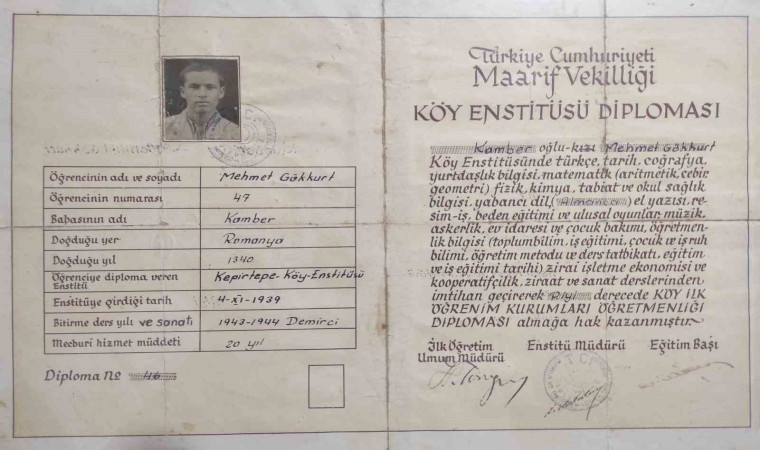 Öğrencinin adı ve soyadı Mehmet Gökkurt
Öğrencinin numarası 47
Babasının adı Kamber
Doğduğu yer Romanya
Doğduğu yıl 1340
Öğrenciye diploma veren Enstitü Kepirtepe-Köy-Enstitüsü
Enstitüye girdiği tarih 4-XI-1939
Bitirme ders yılı ve sanatı 1943-1944 Demirci
Mecburi hizmet müddeti 20 yıl
Diploma No 46
Türkiye Cumhuriyeti
Maarif Vekilliği
KÖY ENSTİTÜSÜ DİPLOMASI
Kamber oğlu-kızı Mehmet Gökkurt
Köy Enstitüsünde türkçe, tarih, coğrafya,
yurtdaşlık bilgisi, matematik (aritmetik, cebir,
geometri) fizik, kimya, tabiat ve okul sağlık
bilgisi, yabancı dil, (Almanca) el yazısı, re-
sim-iş, beden eğitimi ve ulusal oyunlar, müzik,
askerlik, ev idaresi ve çocuk bakımı, öğretmen-
lik bilgisi (toplumbilim, iş eğitimi, çocuk ve iş ruh
bilimi, öğretim metodu ve ders tatbikatı, eğitim
ve iş eğitimi tarihi) zirai işletme ekonomisi ve
kooperatifçilik, ziraat ve sanat derslerinden
imtihan geçirerek Piyi derecede KÖY İLK
ÖĞRENİM KURUMLARI ÖĞRETMENLİĞİ
DİPLOMASI almağa hak kazanmıştır.
İlk Öğretim Umum Müdürü
Enstitü Müdürü
Eğitim Başı